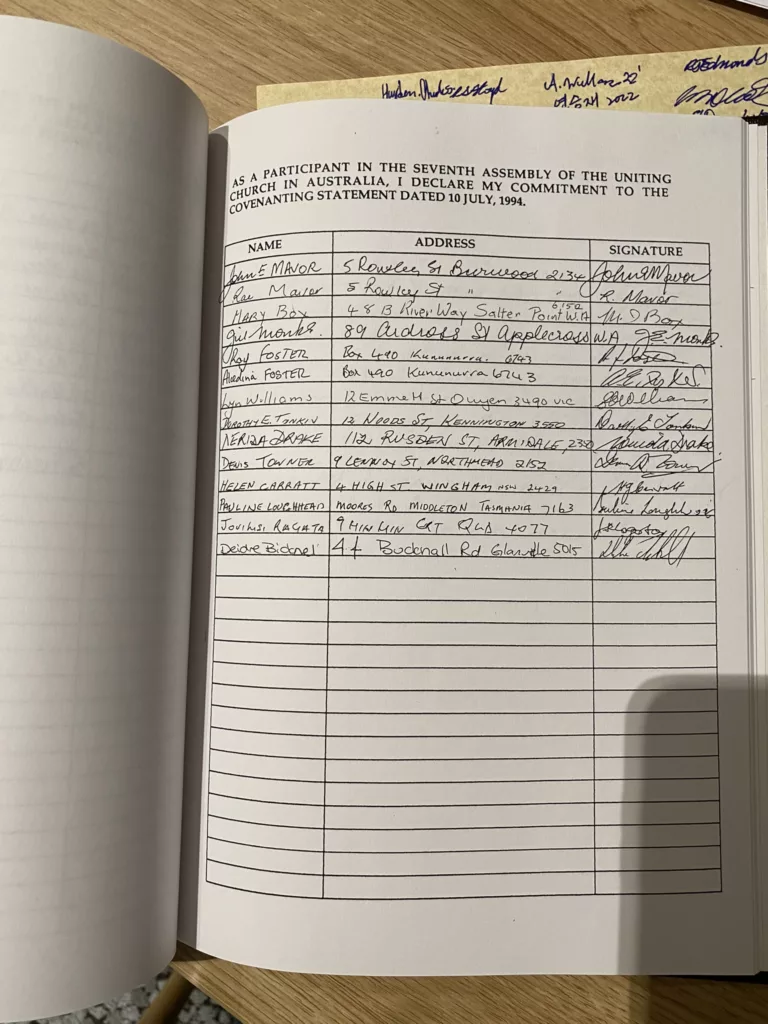 A. Wallace 22'
2022
AS A PARTICIPANT IN THE SEVENTH ASSEMBLY OF THE UNITING
CHURCH IN AUSTRALIA, I DECLARE MY COMMITMENT TO THE
COVENANTING STATEMENT DATED 10 JULY, 1994.
NAME ADDRESS SIGNATURE
John E MAVOR 5 Rowley St Burwood 2134 John E Mavor
Rae Mavor 5 Rowley St " " R. Mavor
MARY BOX 48 B River Way Salter Point W.A 6152 M. J Box
Jill Monks. 89 Ardross St Applecross W.A J.E. Monks.
Roy FOSTER Box 490 Kununurra. 6743
FOSTER Box 490 Kununurra 6743
Lyn Williams 12 Emmett St Ouyen 3490 Vic Williams
DOROTHY E. TONKIN 12 WOODS ST, KENNINGTON 3550 Dorothy E Tonkin
NERIDA DRAKE 112 RUSDEN ST, ARMIDALE, 2350 Nerida Drake
DENIS TOWNER 9 LENNOX ST, NORTHMEAD 2152
HELEN GARRATT 4 HIGH ST WINGHAM NSW 2429
PAULINE LOUGHHEAD MOORES RD MIDDLETON TASMANIA 7163 Pauline Loughhead
9 MIN MIN CRT QLD 4077
Deidre Bicknel 4 Bucknall Rd Glanville 5015